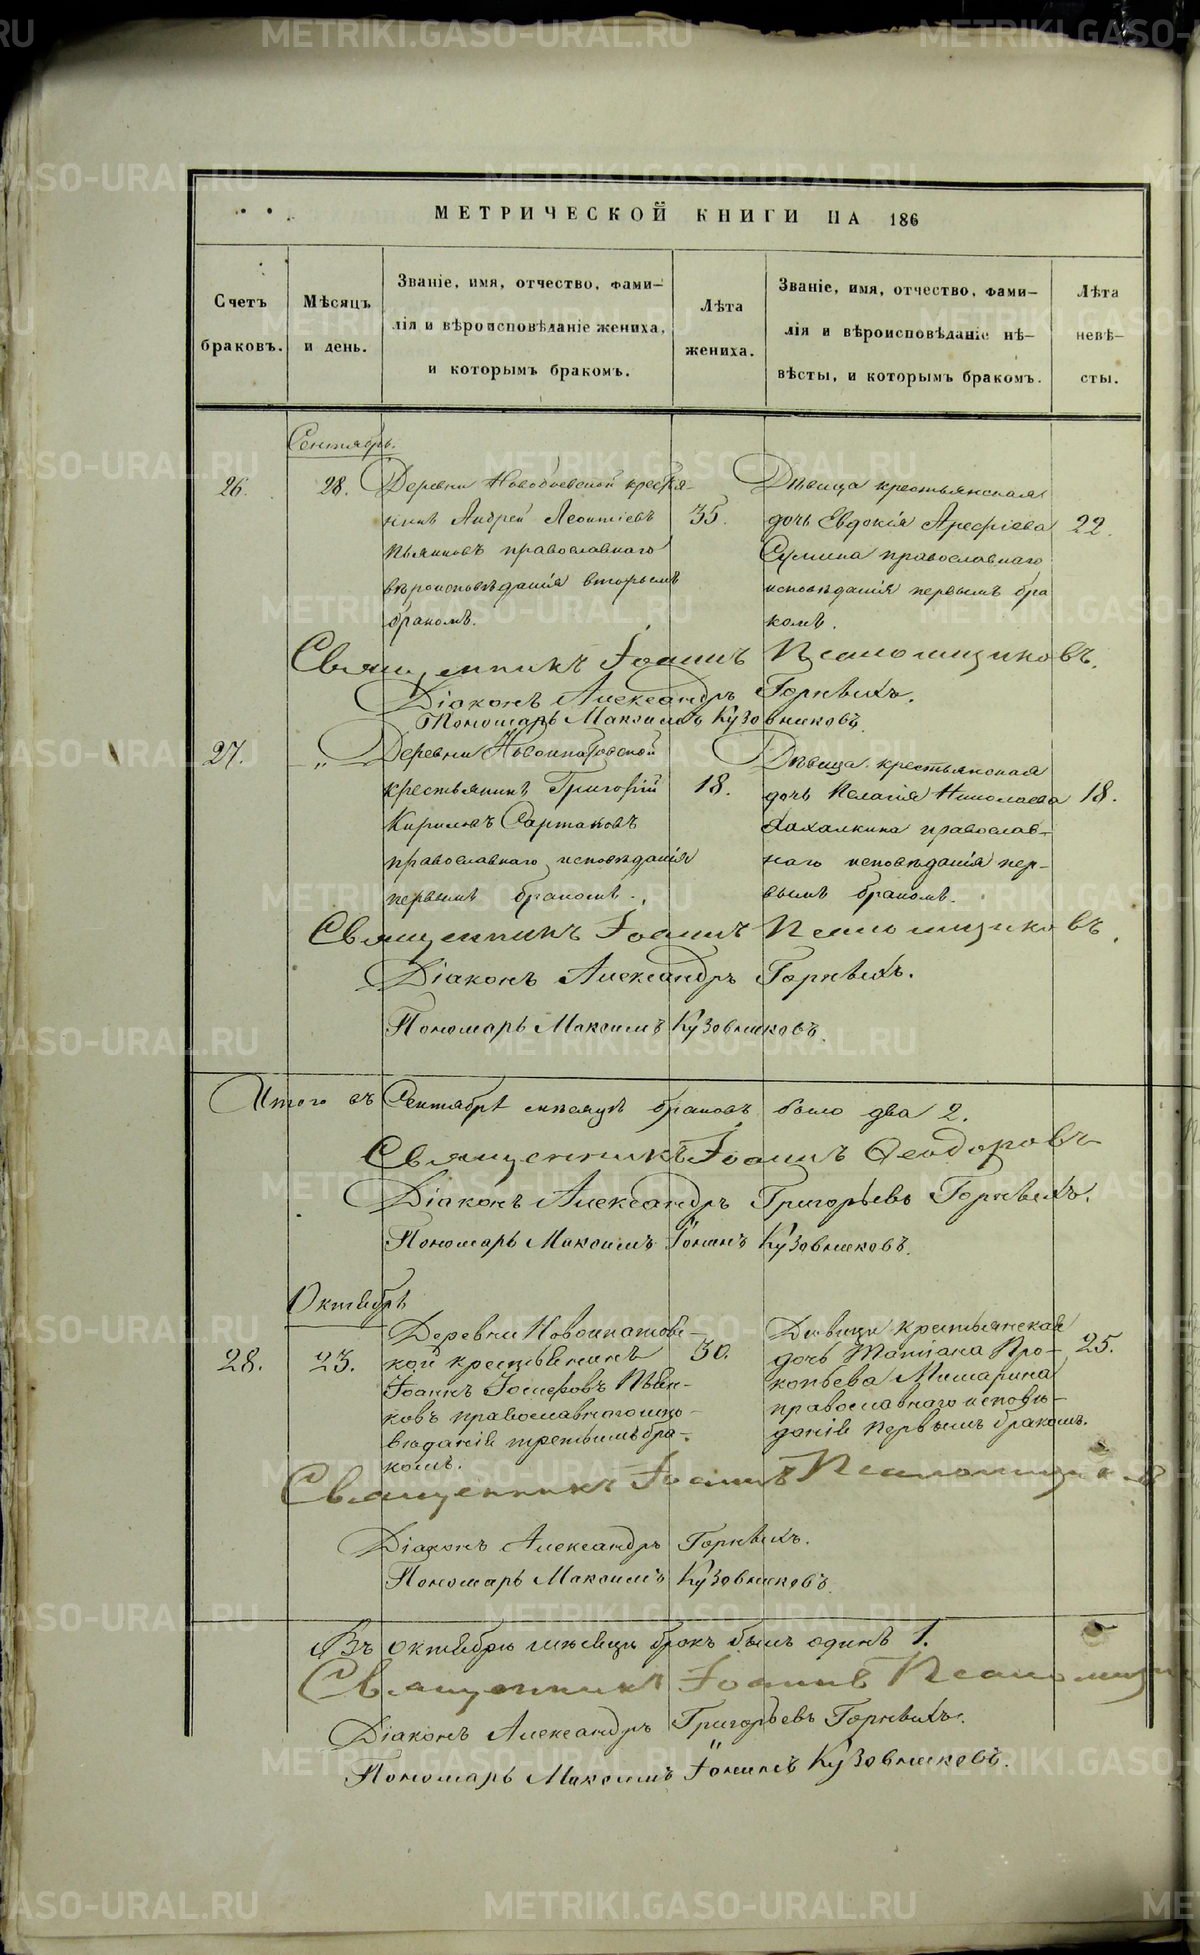 МЕТРИЧЕСКОЙ КНИГИ НА 186
Счетъ браковъ.
Мѣсяцъ и день.
Званіе, имя, отчество, фами-
лія и вѣроисповѣданіе жениха,
и которымъ бракомъ.
Лѣта жениха.
Званіе, имя, отчество, фами-
лія и вѣроисповѣданіе нѣ-
вѣсты, и которымъ бракомъ.
Лѣта невѣ-
сты.
Сентябрь.
26.
28.
Деревни крестья-
нинъ Андрей Леонтіевъ
Пьянковъ православнаго
вѣроисповѣданія вторымъ
бракомъ.
35.
Дѣвица крестьянская
дочь Евдокія Арефіева
православнаго
исповѣданія первымъ бра
комъ.
22.
Священникъ Іоаннъ Псаломщиковъ.
Діаконъ Александръ Горныхъ.
Пономарь Максимъ Кузовниковъ.
27.
"
Деревни Новоипатовской
крестьянинъ Григорій
Кириловъ Сартаковъ
православнаго исповѣданія
первымъ бракомъ.
18.
Дѣвица крестьянская
дочь Пелагія Николаева
православ-
наго исповѣданія пер-
вымъ бракомъ.
18.
Священникъ Іоаннъ Псаломщиковъ.
Діаконъ Александръ Горныхъ.
Пономарь Максимъ Кузовниковъ.
Итого въ Сентябрѣ мѣсяцѣ браковъ было два 2.
Священникъ Іоаннъ Ѳеодоровъ
Діаконъ Александръ Григорьевъ Горныхъ.
Пономарь Максимъ Іонинъ Кузовниковъ.
Октябрь
28.
23.
Деревни Новоипатовс-
кой крестьянинъ
Іоаннъ Іосифовъ Пьян-
ковъ православнаго испо-
вѣданія третьимъ бра-
комъ.
30.
Дѣвица крестьянская
дочь Татіана Про-
копьева Мишарина
православнаго исповѣ-
данія первымъ бракомъ.
25.
Священникъ Іоаннъ Псаломщиковъ
Діаконъ Александръ Горныхъ.
Пономарь Максимъ Кузовниковъ.
Въ октябрѣ мѣсяцѣ бракъ былъ одинъ 1.
Священникъ Іоаннъ
Діаконъ Александръ Григорьевъ Горныхъ.
Пономарь Максимъ Іонинъ Кузовниковъ.
METRIKI.GASO-URAL.RU